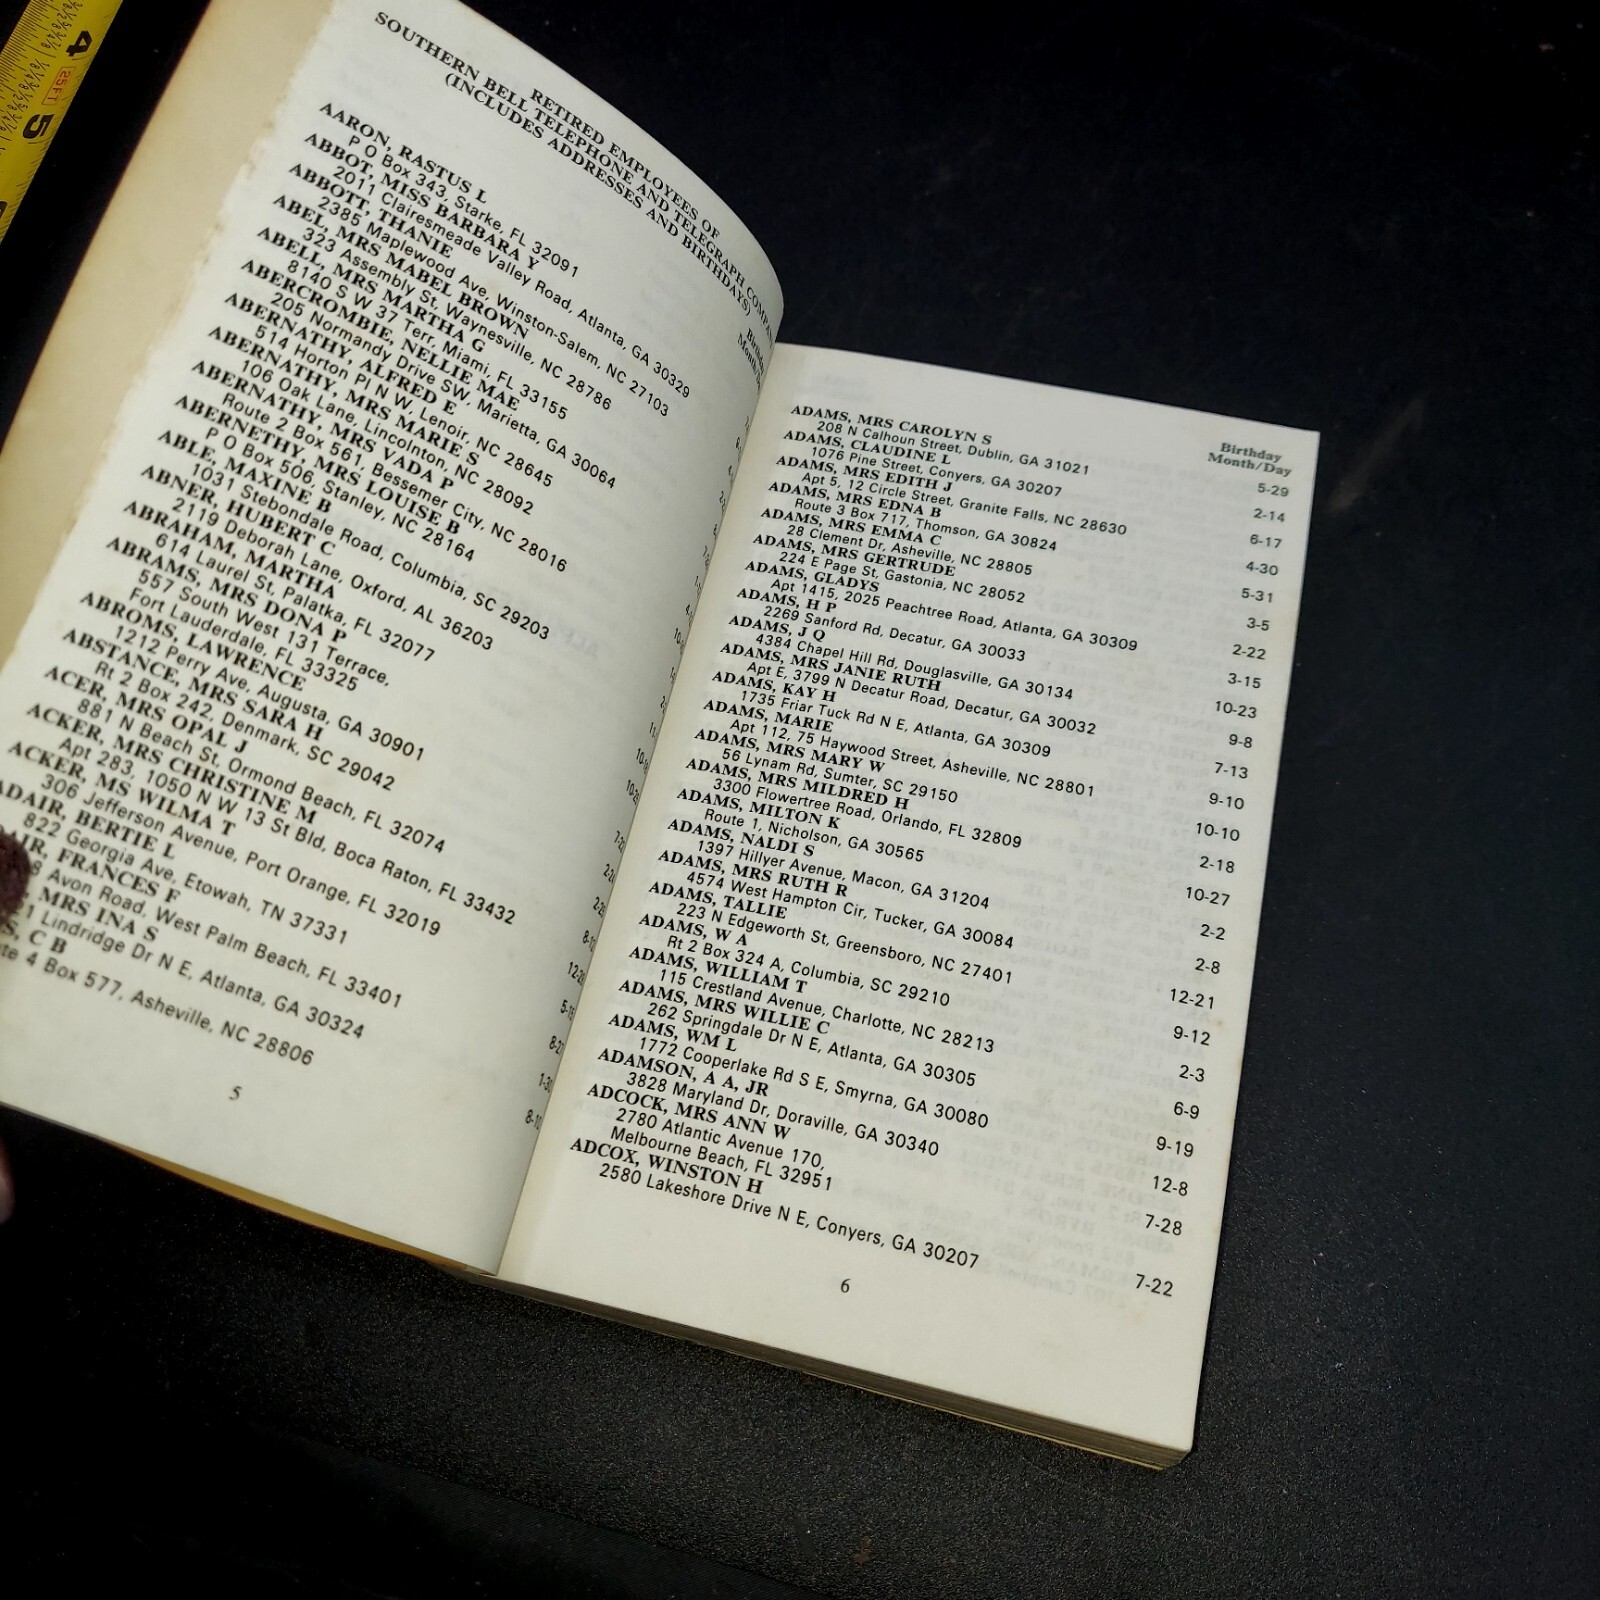 RETIRED EMPLOYEES OF
SOUTHERN BELL TELEPHONE AND TELEGRAPH COMPANY
(INCLUDES ADDRESSES AND BIRTHDAYS)
Birthday
Month/Day
AARON, RASTUS L
P O Box 343, Starke, FL 32091
ABBOT, MISS BARBARA Y
2011 Clairesmeade Valley Road, Atlanta, GA 30329
ABBOTT, THANIE
2385 Maplewood Ave, Winston-Salem, NC 27103
ABEL, MRS MABEL BROWN
323 Assembly St, Waynesville, NC 28786
ABELL, MRS MARTHA G
8140 S W 37 Terr, Miami, FL 33155
ABERCROMBIE, NELLIE MAE
205 Normandy Drive SW, Marietta, GA 30064
ABERNATHY, ALFRED E
514 Horton Pl N W, Lenoir, NC 28645
ABERNATHY, MRS MARIE S
106 Oak Lane, Lincolnton, NC 28092
ABERNATHY, MRS VADA P
Route 2 Box 561, Bessemer City, NC 28016
ABERNETHY, MRS LOUISE B
P O Box 506, Stanley, NC 28164
ABLE, MAXINE B
1031 Stebondale Road, Columbia, SC 29203
ABNER, HUBERT C
2119 Deborah Lane, Oxford, AL 36203
ABRAHAM, MARTHA
614 Laurel St, Palatka, FL 32077
ABRAMS, MRS DONA P
557 South West 131 Terrace,
Fort Lauderdale, FL 33325
ABROMS, LAWRENCE
1212 Perry Ave, Augusta, GA 30901
ABSTANCE, MRS SARA H
Rt 2 Box 242, Denmark, SC 29042
ACER, MRS OPAL J
881 N Beach St, Ormond Beach, FL 32074
ACKER, MRS CHRISTINE M
Apt 283, 1050 N W 13 St Bld, Boca Raton, FL 33432
ACKER, MS WILMA T
306 Jefferson Avenue, Port Orange, FL 32019
ADAIR, BERTIE L
822 Georgia Ave, Etowah, TN 37331
FRANCES F
Avon Road, West Palm Beach, FL 33401
MRS INA S
Lindridge Dr N E, Atlanta, GA 30324
C B
4 Box 577, Asheville, NC 28806
5
Birthday
Month/Day
ADAMS, MRS CAROLYN S
208 N Calhoun Street, Dublin, GA 31021 5-29
ADAMS, CLAUDINE L
1076 Pine Street, Conyers, GA 30207 2-14
ADAMS, MRS EDITH J
Apt 5, 12 Circle Street, Granite Falls, NC 28630 6-17
ADAMS, MRS EDNA B
Route 3 Box 717, Thomson, GA 30824 4-30
ADAMS, MRS EMMA C
28 Clement Dr, Asheville, NC 28805 5-31
ADAMS, MRS GERTRUDE
224 E Page St, Gastonia, NC 28052 3-5
ADAMS, GLADYS
Apt 1415, 2025 Peachtree Road, Atlanta, GA 30309 2-22
ADAMS, H P
2269 Sanford Rd, Decatur, GA 30033 3-15
ADAMS, J Q
4384 Chapel Hill Rd, Douglasville, GA 30134 10-23
ADAMS, MRS JANIE RUTH
Apt E, 3799 N Decatur Road, Decatur, GA 30032 9-8
ADAMS, KAY H
1735 Friar Tuck Rd N E, Atlanta, GA 30309 7-13
ADAMS, MARIE
Apt 112, 75 Haywood Street, Asheville, NC 28801 9-10
ADAMS, MRS MARY W
56 Lynam Rd, Sumter, SC 29150 10-10
ADAMS, MRS MILDRED H
3300 Flowertree Road, Orlando, FL 32809 2-18
ADAMS, MILTON K
Route 1, Nicholson, GA 30565 10-27
ADAMS, NALDI S
1397 Hillyer Avenue, Macon, GA 31204 2-2
ADAMS, MRS RUTH R
4574 West Hampton Cir, Tucker, GA 30084 2-8
ADAMS, TALLIE
223 N Edgeworth St, Greensboro, NC 27401 12-21
ADAMS, W A
Rt 2 Box 324 A, Columbia, SC 29210 9-12
ADAMS, WILLIAM T
115 Crestland Avenue, Charlotte, NC 28213 2-3
ADAMS, MRS WILLIE C
262 Springdale Dr N E, Atlanta, GA 30305 6-9
ADAMS, WM L
1772 Cooperlake Rd S E, Smyrna, GA 30080 9-19
ADAMSON, A A, JR
3828 Maryland Dr, Doraville, GA 30340 12-8
ADCOCK, MRS ANN W
2780 Atlantic Avenue 170,
Melbourne Beach, FL 32951 7-28
ADCOX, WINSTON H
2580 Lakeshore Drive N E, Conyers, GA 30207 7-22
6
4
25FT
5